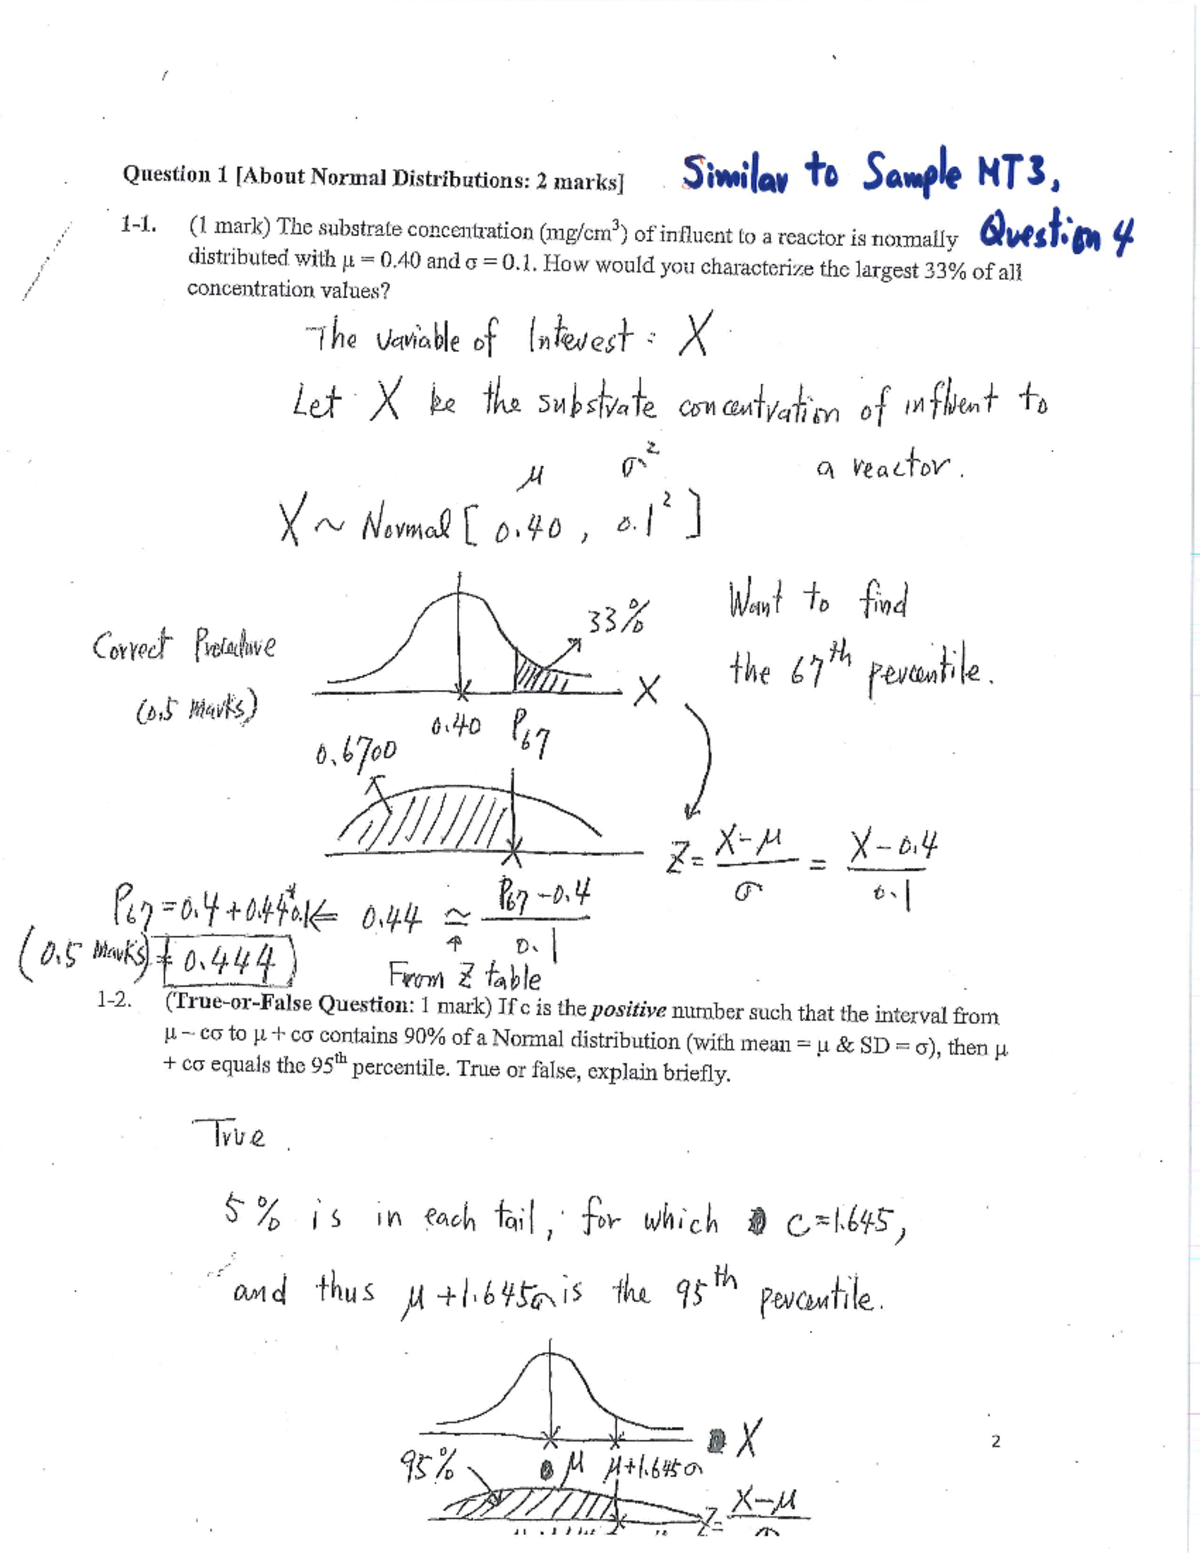 Question 1 [About Normal Distributions: 2 marks]
Similar to Sample MT3,
Question 4
1-1. (1 mark) The substrate concentration (mg/cm³) of influent to a reactor is normally
distributed with μ = 0.40 and σ = 0.1. How would you characterize the largest 33% of all
concentration values?
The variable of Interest: X
Let X be the substrate concentration of influent to
a reactor.
μ σ²
X ~ Normal [ 0.40 , 0.1² ]
33%
Want to find
the 67th percentile.
Correct Procedure
(0.5 Marks)
X
0.40 P67
0.6700
Z = X-μ / σ = X-0.4 / 0.1
P67 = 0.4 + 0.44*0.1 ⇐ 0.44 ≃ P67-0.4 / 0.1
(0.5 Marks) = 0.444
From Z table
1-2. (True-or-False Question: 1 mark) If c is the positive number such that the interval from
μ – cσ to μ + cσ contains 90% of a Normal distribution (with mean = μ & SD = σ), then μ
+ cσ equals the 95th percentile. True or false, explain briefly.
True.
5% is in each tail, for which c=1.645,
and thus μ+1.645σ is the 95th percentile.
X
95%
μ μ+1.645σ
Z= X-μ / σ
2